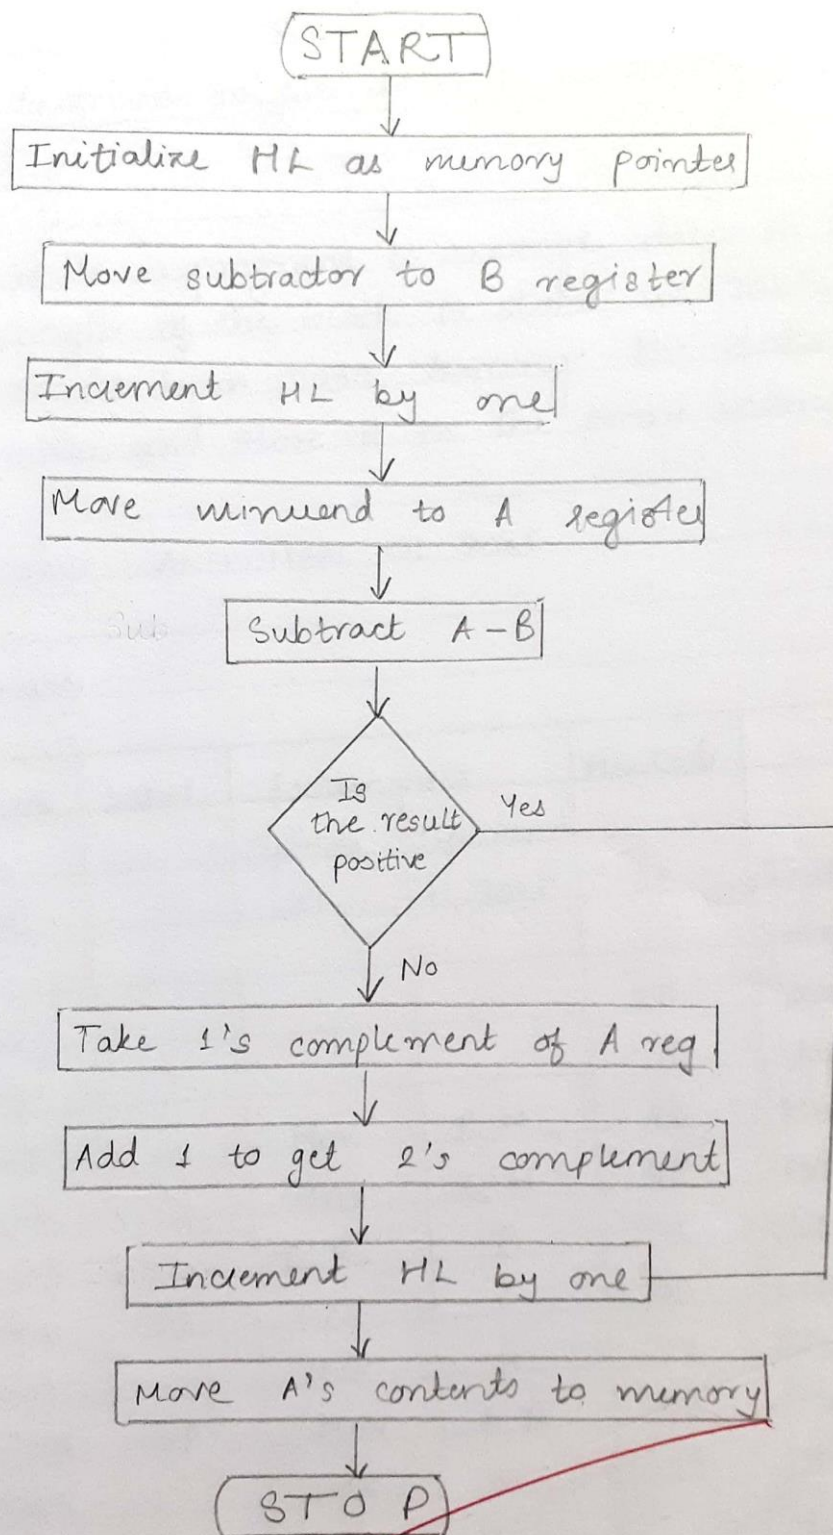 START
Initialize HL as memory pointer
Move subtractor to B register
Increment HL by one
Move minuend to A register
Sub
Subtract A - B
Is
the result
positive
Yes
No
Take 1's complement of A reg.
Add 1 to get 2's complement
Increment HL by one
Move A's contents to memory
STOP